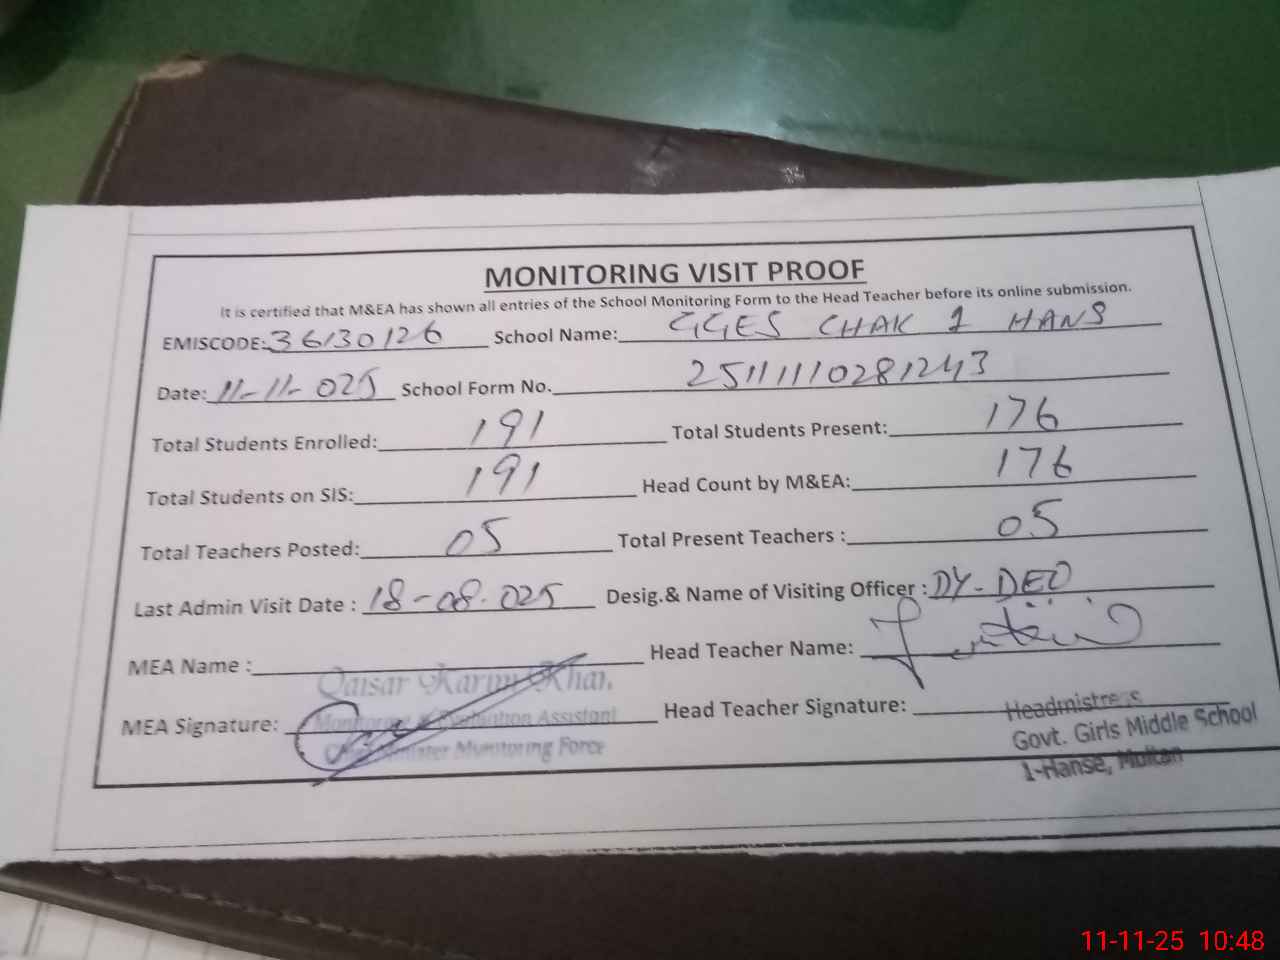 MONITORING VISIT PROOF
It is certified that M&EA has shown all entries of the School Monitoring Form to the Head Teacher before its online submission.
EMISCODE: 36130126 School Name: GGES CHAK 1 HANS
Date: 11-11-025 School Form No. 25111110281243
Total Students Enrolled: 191 Total Students Present: 176
Total Students on SIS: 191 Head Count by M&EA: 176
Total Teachers Posted: 05 Total Present Teachers : 05
Last Admin Visit Date : 18-08-025 Desig.& Name of Visiting Officer : DY-DEO
MEA Name : Qaisar Karim Khan Head Teacher Name:
MEA Signature: Monitoring & Evaluation Assistant Head Teacher Signature: Headmistress
Chief Minister Monitoring Force Govt. Girls Middle School
1-Hanse, Multan
11-11-25 10:48